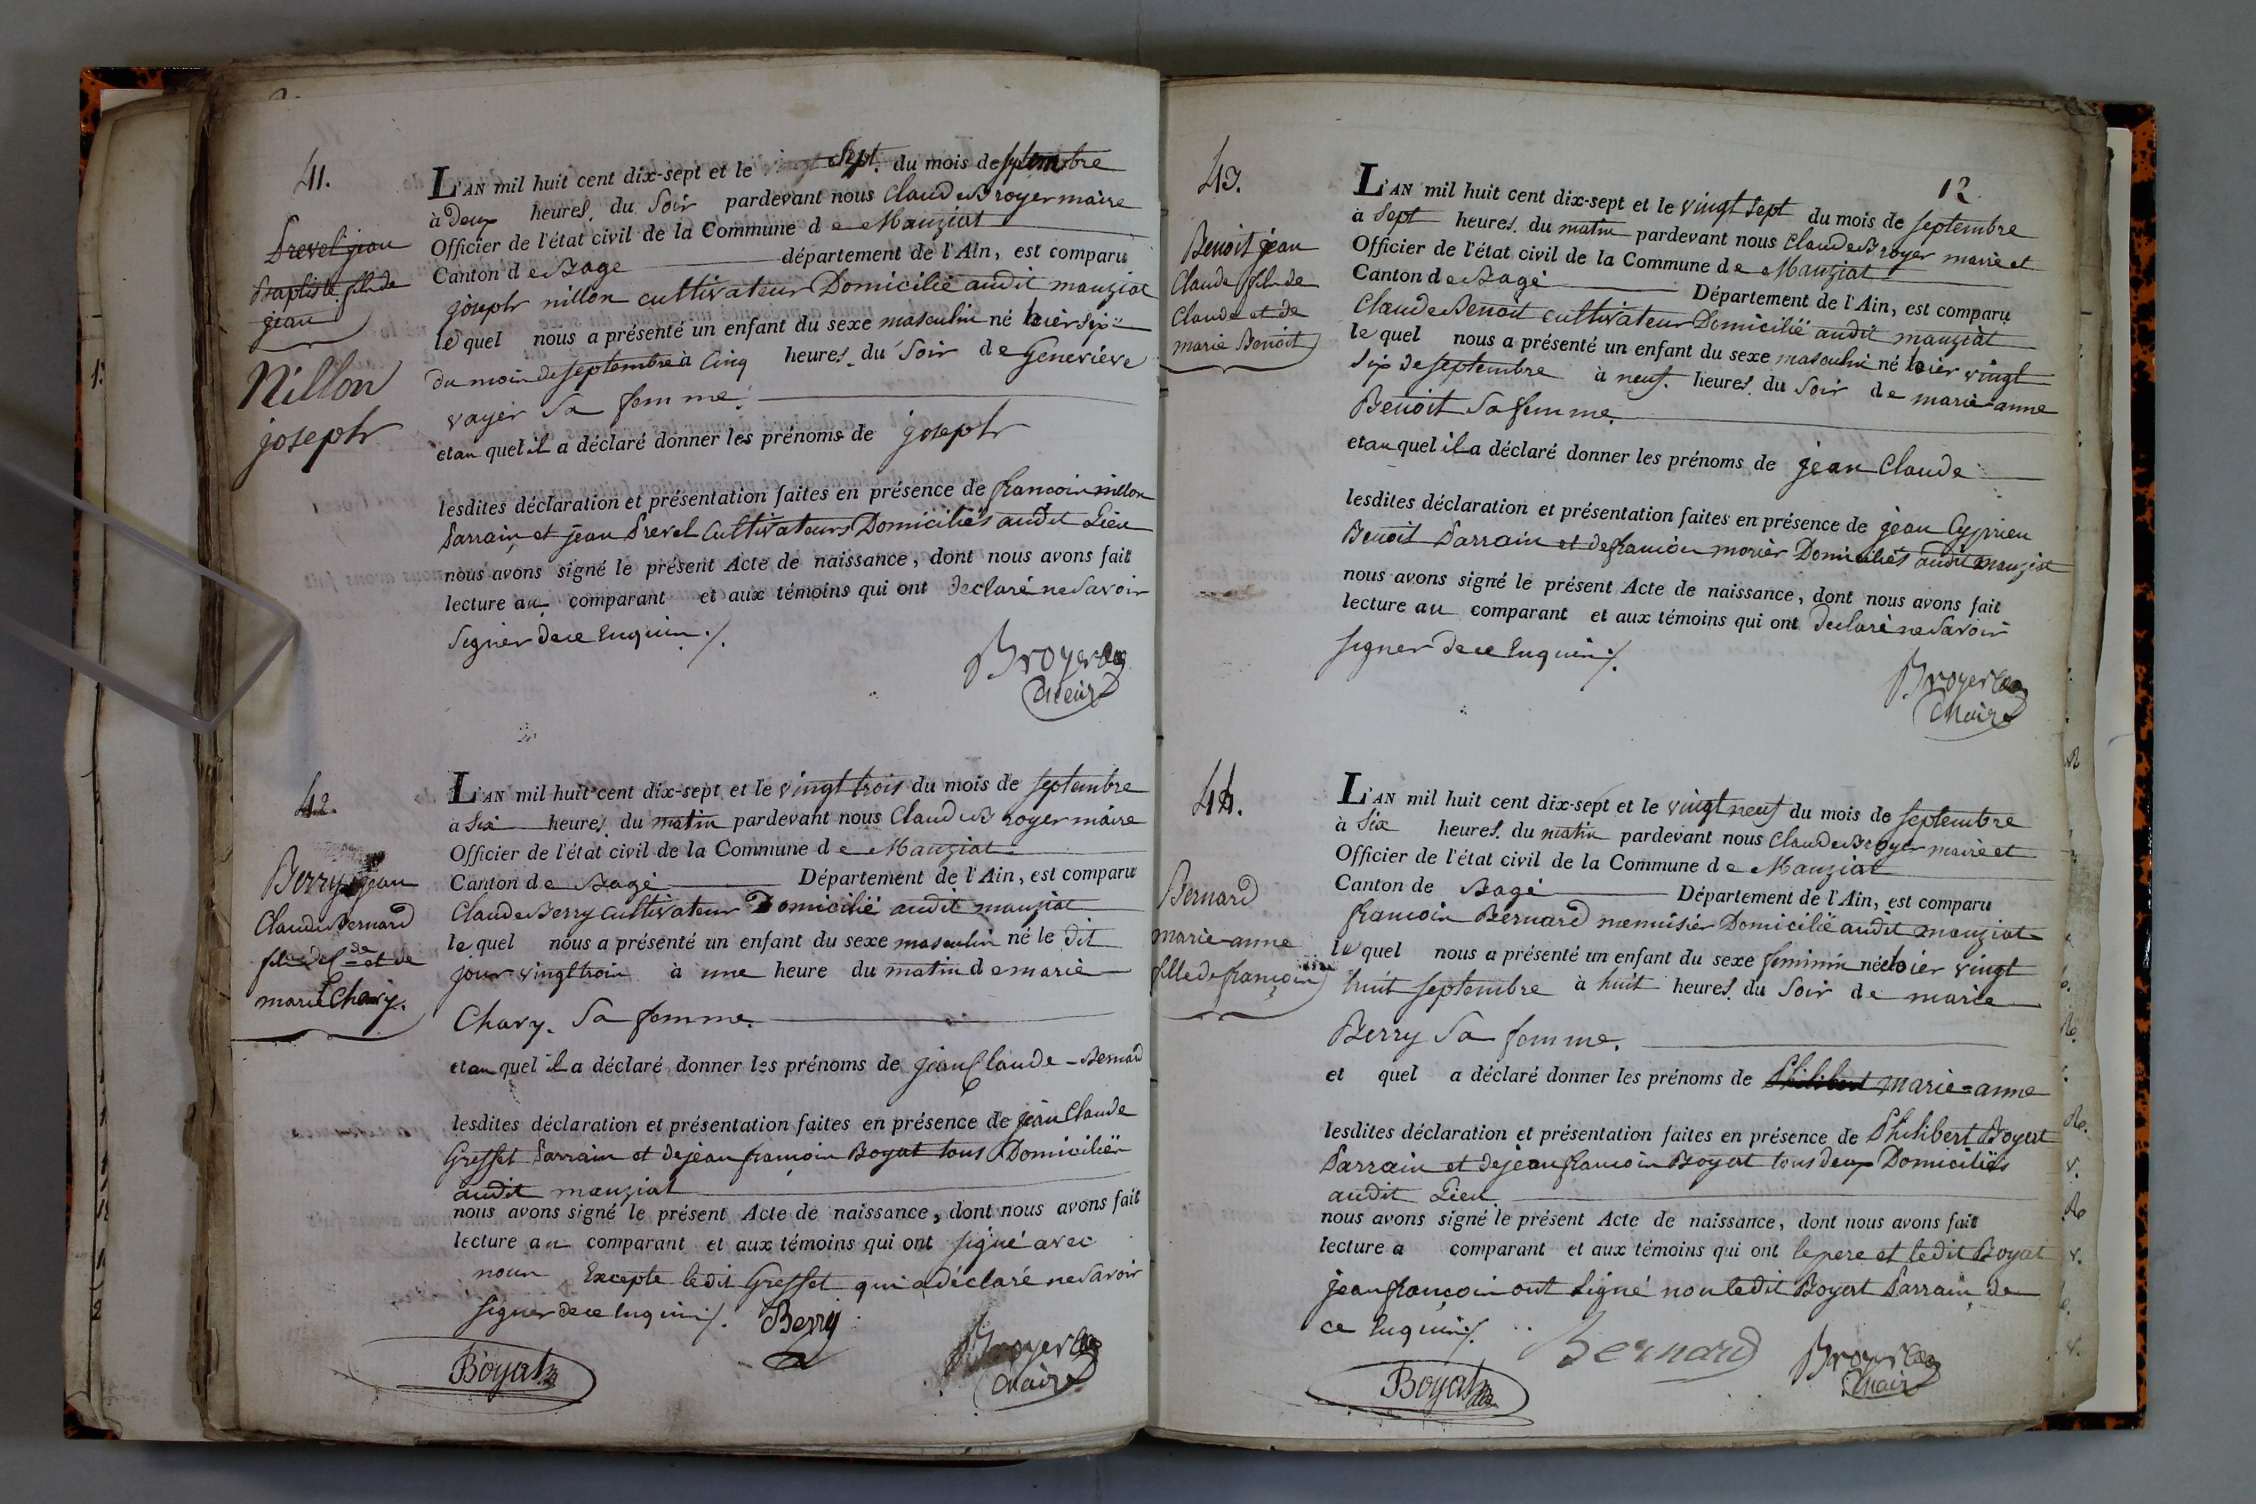 41.
Prevel jean
Baptiste fils de
jean
Nillon
joseph
L'AN mil huit cent dix-sept et le Sept. du mois de septembre
à Deux heures du Soir pardevant nous Claude Broyer maire
Officier de l'état civil de la Commune de Manziat
Canton de Bage département de l'Ain, est comparu
joseph nillon cultivateur Domicilié audit manziat
le quel nous a présenté un enfant du sexe masculin né hier six
du mois de septembre à Cinq heures du Soir de Geneviève
vayer Sa femme.
et au quel il a déclaré donner les prénoms de joseph
lesdites déclaration et présentation faites en présence de francois nillon
Parrain et jean Prevel Cultivateurs Domiciliés audit Lieu
nous avons signé le présent Acte de naissance, dont nous avons fait
lecture au comparant et aux témoins qui ont declaré ne Savoir
Signer de ce Enquis ./.
Broyer
Maire
42.
Berry jean
Claude Bernard
fils de Cde et de
marie Chavy.
L'AN mil huit cent dix-sept et le vingt trois du mois de septembre
à Six heures du matin pardevant nous Claude Broyer maire
Officier de l'état civil de la Commune de Manziat
Canton de Bagé Département de l'Ain, est comparu
Claude Berry Cultivateur Domicilié audit manziat
le quel nous a présenté un enfant du sexe masculin né le dit
jour vingt trois à une heure du matin de marie
Chavy. Sa femme.
et au quel il a déclaré donner les prénoms de jean Claude-Bernard
lesdites déclaration et présentation faites en présence de jean Claude
Greffet Parrain et de jean francois Boyat tous Domiciliés
audit manziat
nous avons signé le présent Acte de naissance, dont nous avons fait
lecture au comparant et aux témoins qui ont signé avec
nous Excepte ledit Greffet qui a déclaré ne Savoir
signer de ce Enquis ./. Berry
Boyat
Broyer
Maire
12
43.
Benoit jean
Claude fils de
Claude et de
marie Benoit
L'AN mil huit cent dix-sept et le vingt Sept du mois de septembre
à Sept heures du matin pardevant nous Claude Broyer maire et
Officier de l'état civil de la Commune de Manziat
Canton de Bagé Département de l'Ain, est comparu
Claude Benoit cultivateur Domicilié audit manziat
le quel nous a présenté un enfant du sexe masculin né hier vingt
Six de septembre à neuf heures du Soir de marie-anne
Benoit Sa femme.
et au quel il a déclaré donner les prénoms de jean Claude
lesdites déclaration et présentation faites en présence de jean Cyprien
Benoit Parrain et de francois morier Domiciliés audit manziat
nous avons signé le présent Acte de naissance, dont nous avons fait
lecture au comparant et aux témoins qui ont declaré ne Savoir
signer de ce Enquis ./.
Broyer
Maire
44.
Bernard
marie-anne
fille de françois
L'AN mil huit cent dix-sept et le vingt neuf du mois de septembre
à Six heures du matin pardevant nous Claude Broyer maire et
Officier de l'état civil de la Commune de Manziat
Canton de Bagé Département de l'Ain, est comparu
francois Bernard menuisier Domicilié audit manziat
le quel nous a présenté un enfant du sexe feminin née hier vingt
huit septembre à huit heures du Soir de marie
Berry Sa femme.
et quel a déclaré donner les prénoms de Philibert marie=anne
lesdites déclaration et présentation faites en présence de Philibert Boyat
Parrain et de jean francois Boyat tous deux Domiciliés
audit Lieu
nous avons signé le présent Acte de naissance, dont nous avons fait
lecture a comparant et aux témoins qui ont le pere et ledit Boyat
jean françois ont Signé non ledit Boyat Parrain de
ce Enquis ./.
Bernard
Boyat
Broyer
Maire